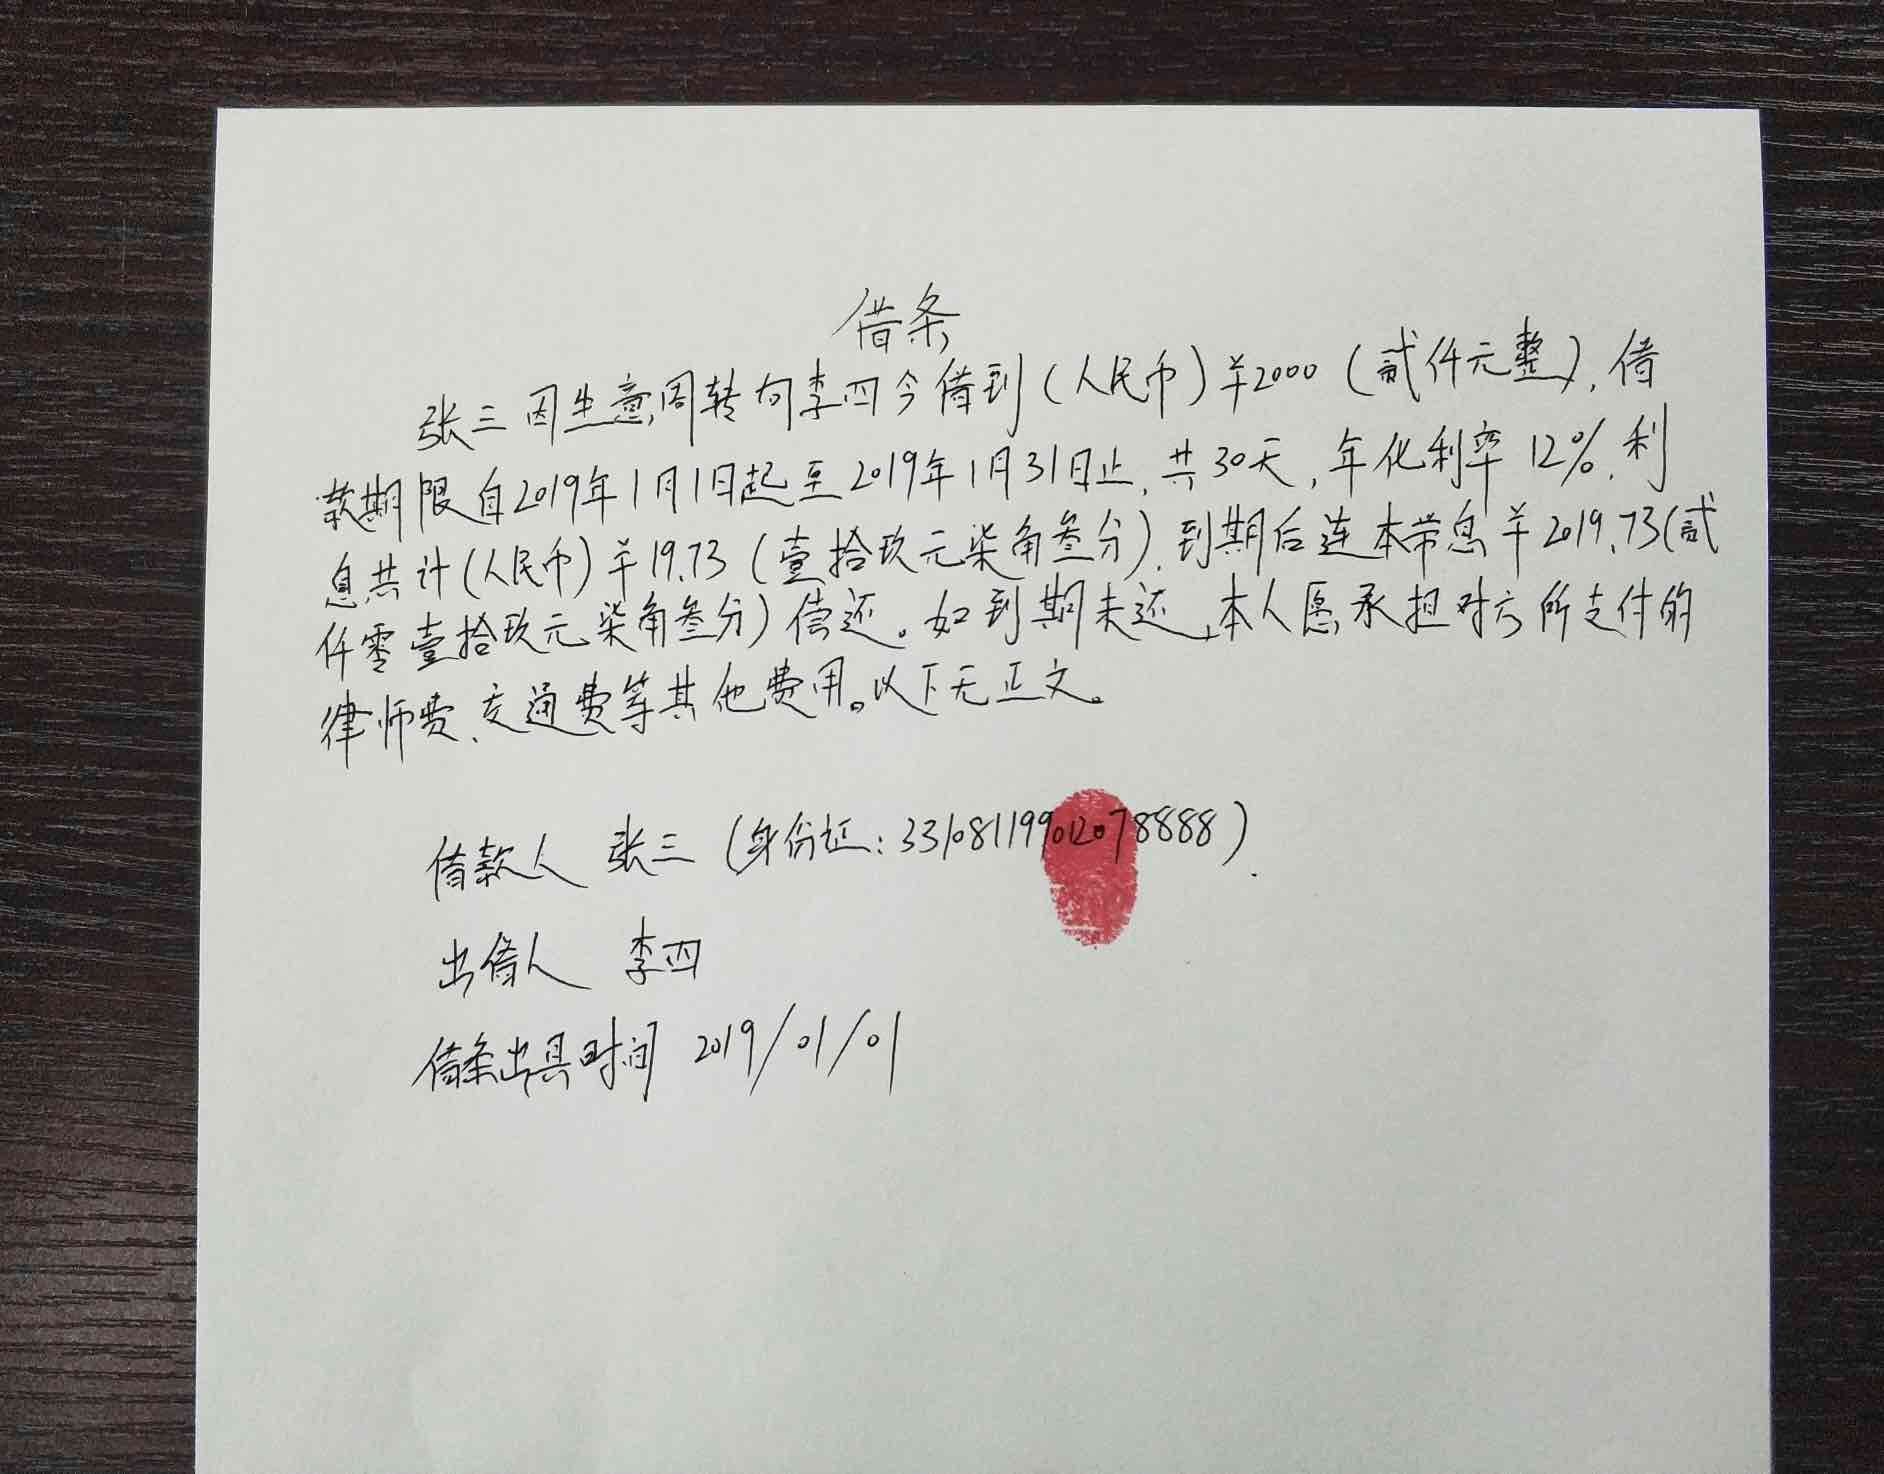 借条
张三因生意周转向李四今借到(人民币)¥2000(贰仟元整),借
款期限自2019年1月1日起至2019年1月31日止,共30天,年化利率12%,利
息共计(人民币)¥19.73(壹拾玖元柒角叁分),到期后连本带息¥2019.73(贰
仟零壹拾玖元柒角叁分)偿还。如到期未还,本人愿承担对方所支付的
律师费、交通费等其他费用。以下无正文。
借款人 张三(身份证:331081199012078888).
出借人 李四
借条出具时间 2019/01/01